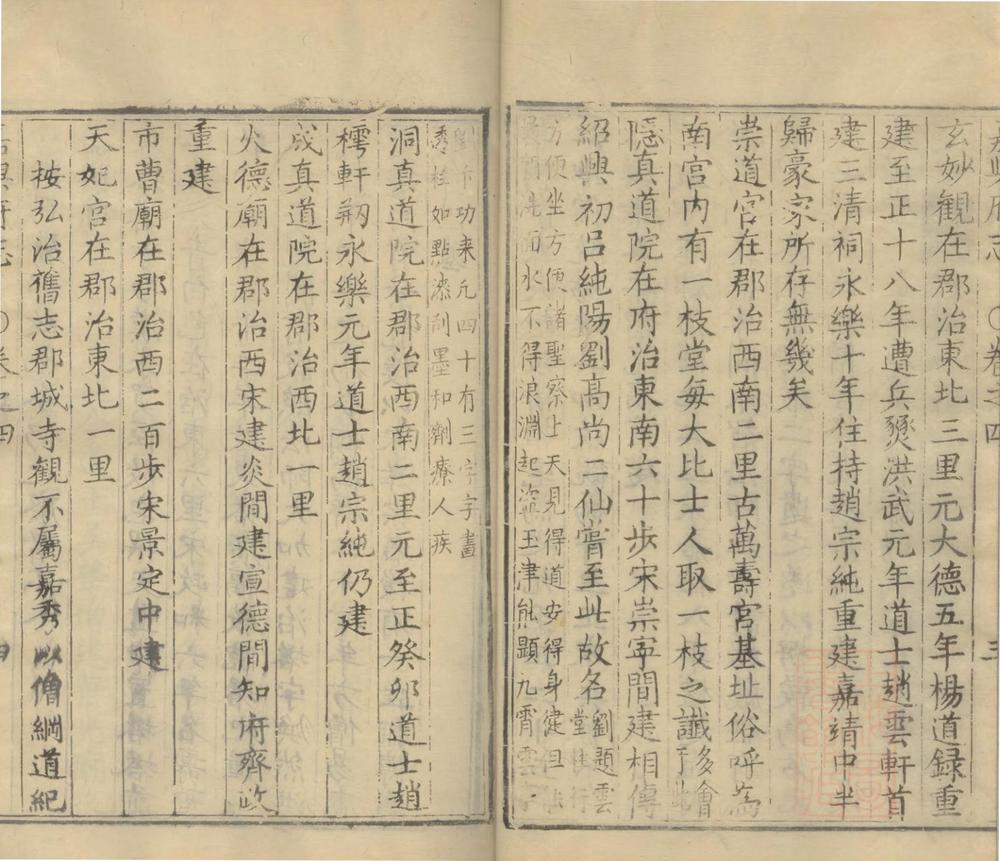 興府志 ○卷之四 三
玄妙觀在郡治東北三里元大德五年楊道録重
建至正十八年遭兵燹洪武元年道士趙雲軒首
建三清祠永樂十年住持趙宗純重建嘉靖中半
歸豪家所存無幾矣
崇道宫在郡治西南二里古萬壽宫基址俗呼為
南宫内有一枝堂每大比士人取一枝之讖多會
于此
隠真道院在府治東南六十步宋崇寧間建相傳
紹興初吕純陽劉高尚二仙嘗至此故名劉題雲
堂行
方便坐方便諸聖察上天見得道安得身健且
洗面水不得浪淵起盗玉津能題九霄雲
功来凡四十有三字字畫
透柱如點漆刮墨和劑療人疾
洞真道院在郡治西南二里元至正癸卯道士趙
樗軒刱永樂元年道士趙宗純仍建
成真道院在郡治西北一里
火德廟在郡治西宋建炎間建宣德間知府齊政
重建
市曹廟在郡治西二百步宋景定中建
天妃宫在郡治東北一里
按弘治舊志郡城寺觀不屬嘉秀以僧綱道紀
興府志 ○卷之四 四